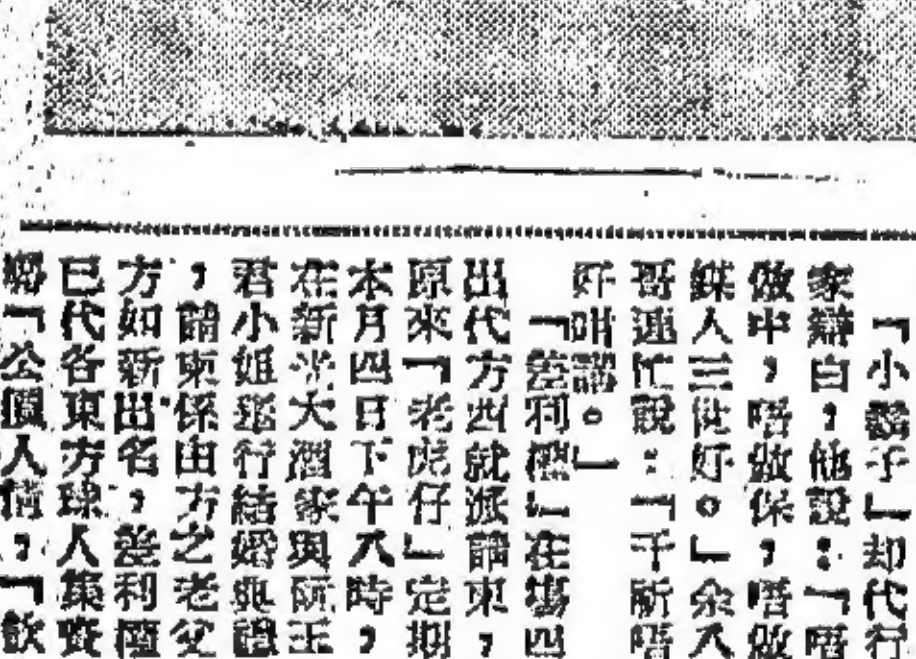 「小鬍子」却代行
家辯白，他說：「唔
做中，唔做保，唔做
媒人三世好。」余大
哥連忙說：「千祈唔
好咁講。」
「差利權」在塲四
出代方四就派請柬，
原來「老虎仔」定期
本月四日下午八時，
在新光大酒家與阮玉
君小姐舉行結婚典禮
，請柬係由方之老父
方如新出名，差利權
已代各東方球人集資
夾「公園人情，「飲